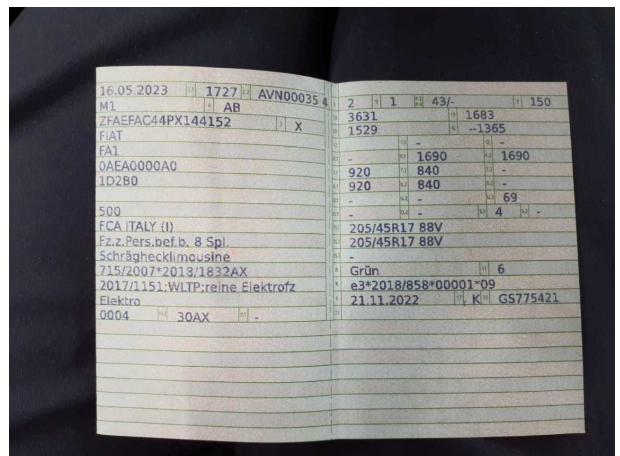 16.05.2023 1727 AVN00035 4
M1 AB
ZFAEFAC44PX144152 X
FIAT
FA1
0AEA0000A0
1D2B0
500
FCA ITALY (I)
Fz.z.Pers.bef.b. 8 Spl.
Schräghecklimousine
715/2007*2018/1832AX
2017/1151;WLTP;reine Elektrofz
Elektro
0004 30AX -
2 1 43/- 150
3631 1683
1529 --1365
- -
- 1690 1690
920 840 -
920 840 -
- - 69
- - 4 -
205/45R17 88V
205/45R17 88V
-
Grün 6
e3*2018/858*00001*09
21.11.2022 K GS775421